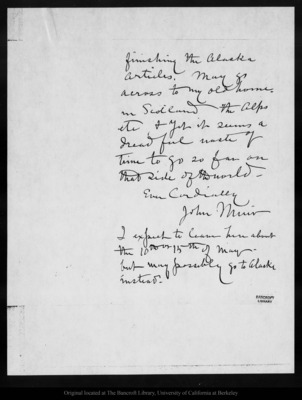 finishing the Alaska
articles. May go
across to my old home
in Scotland the Alps
etc & yet it seems a
dreadful waste of
time to go so far on
that side of the world -
Ever Cordially
John Muir
I expect to leave here about
the 10th or 15th of May -
but may possibly go to Alaska
instead.
BANCROFT
LIBRARY
Original located at The Bancroft Library, University of California at Berkeley